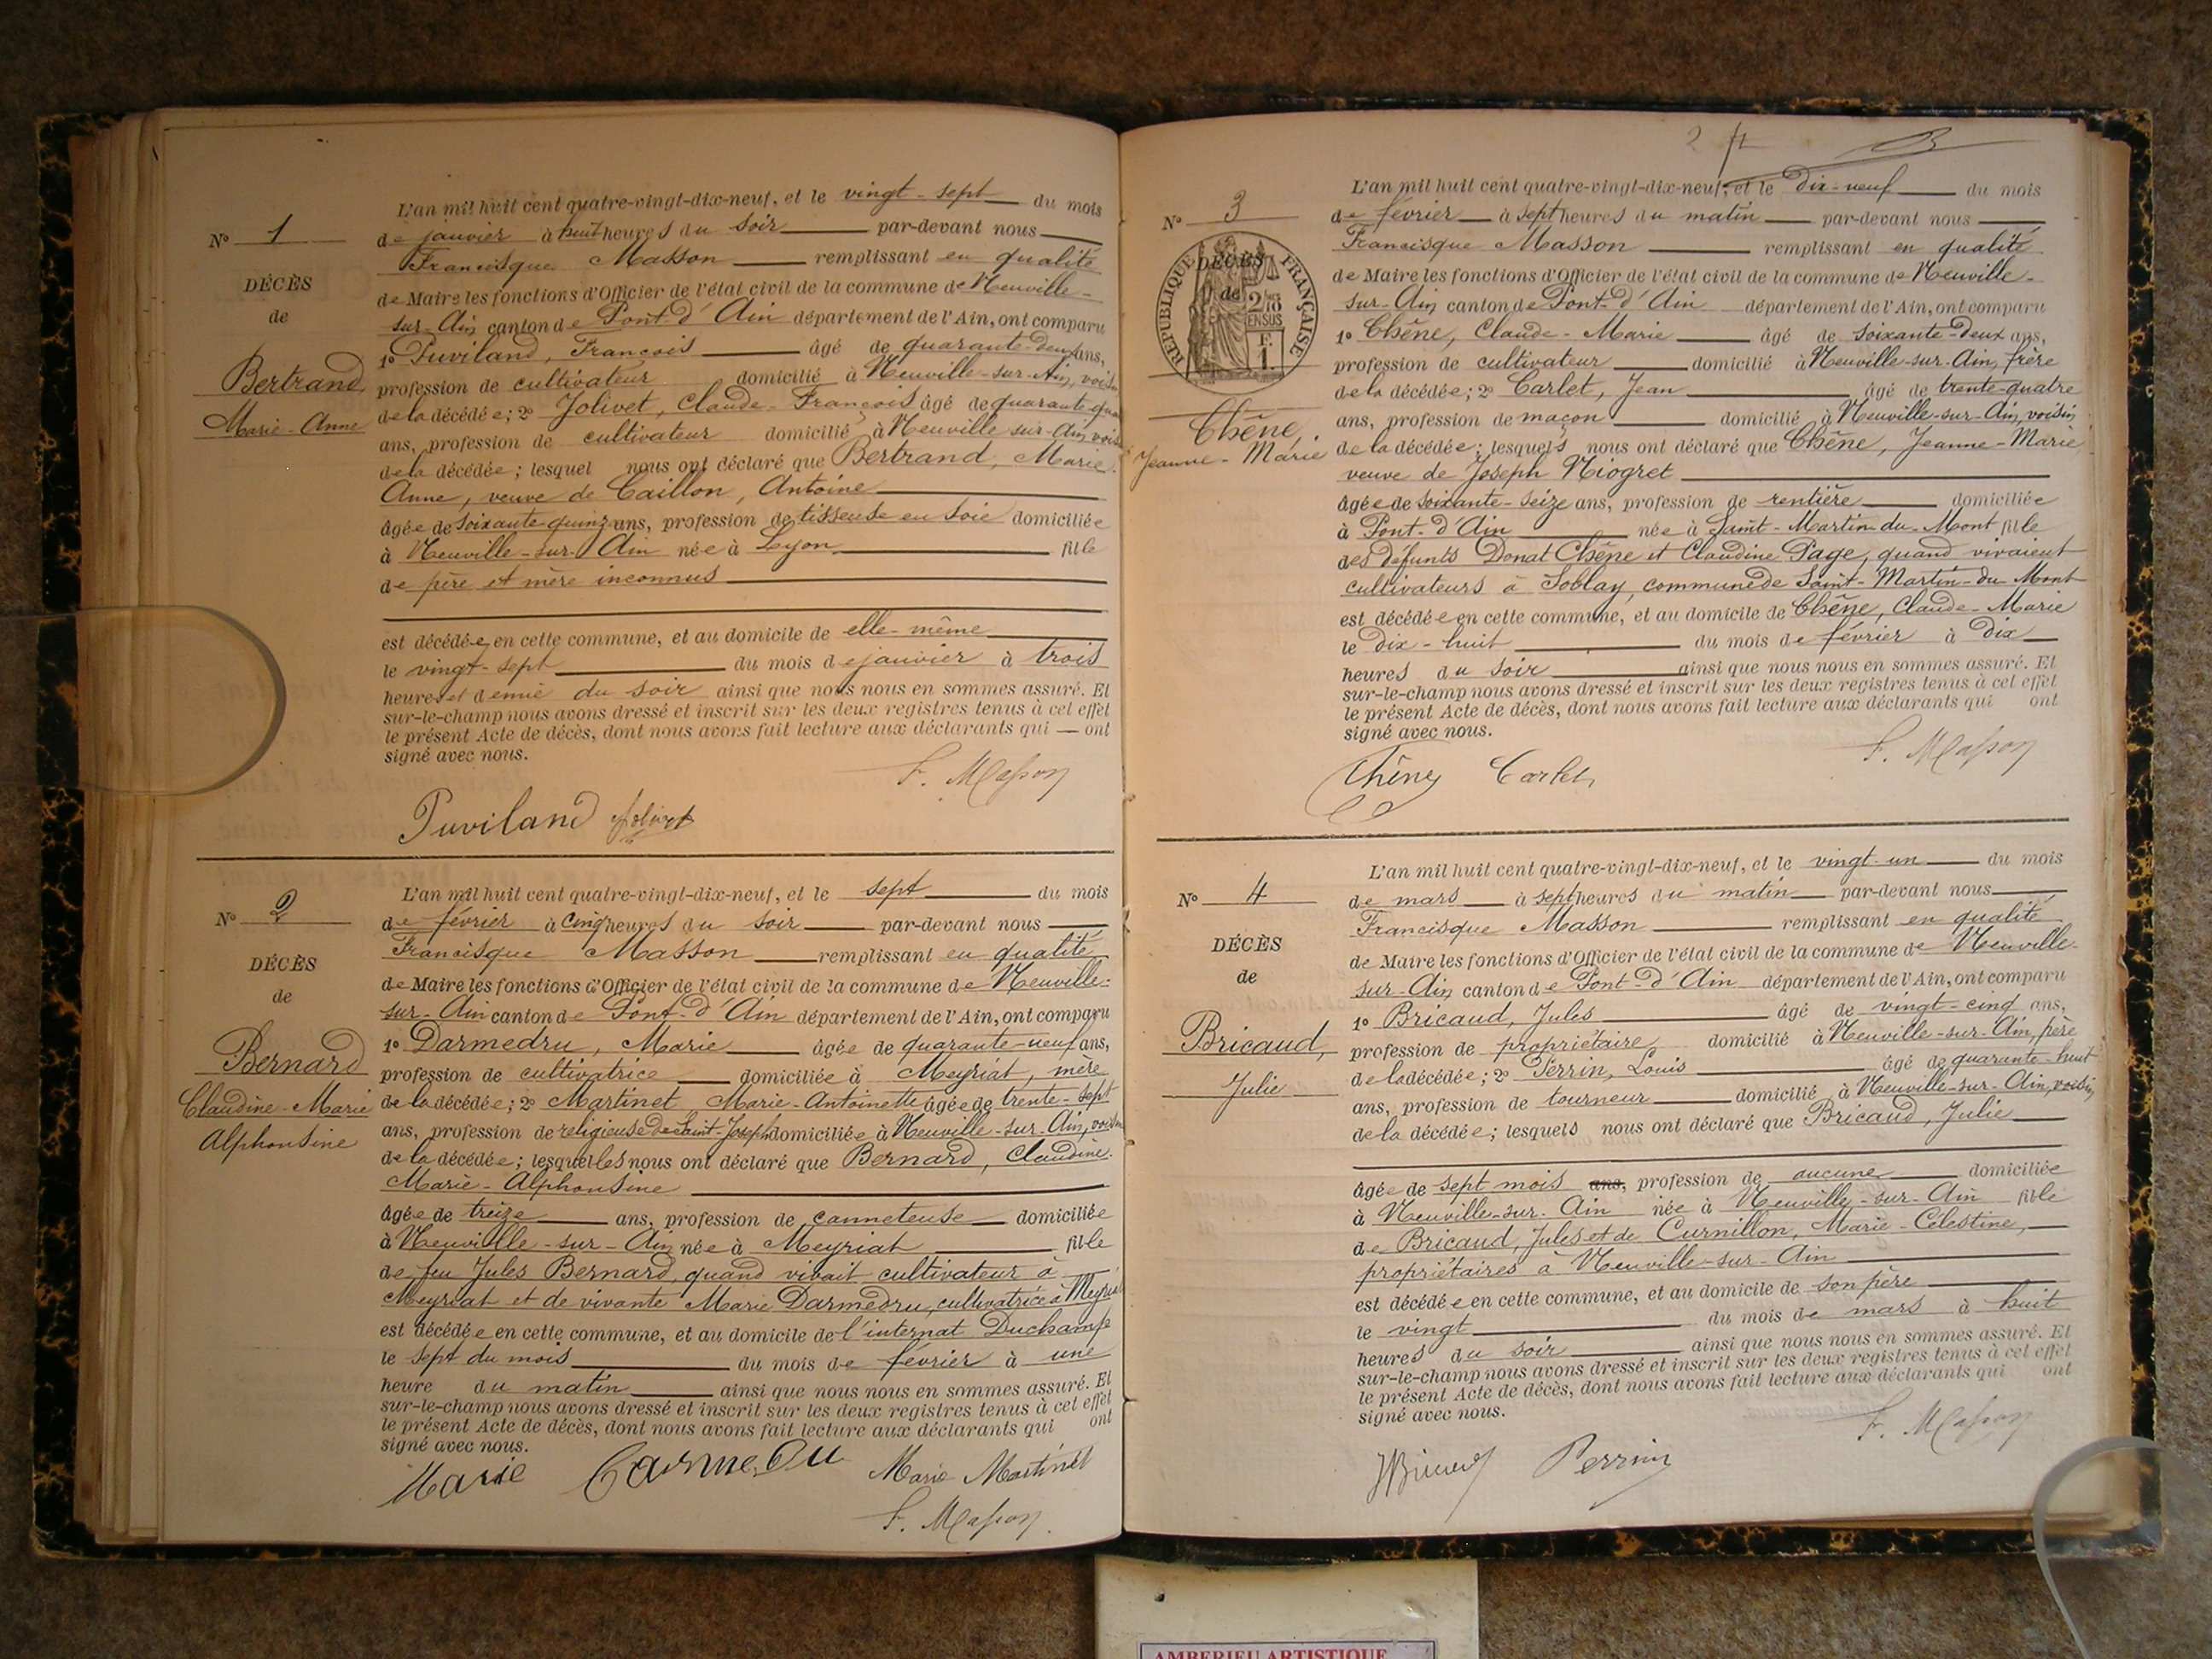 L'an mil huit cent quatre-vingt-dix-neuf, et le vingt-sept du mois
N° 1
de janvier à huit heures du soir par-devant nous
Francisque Masson remplissant en qualité
DÉCÈS
de Maire les fonctions d'Officier de l'état civil de la commune de Neuville-
de
sur-Ain canton de Pont-d'Ain département de l'Ain, ont comparu
1° Puviland, François âgé de quarante-deux ans,
Bertrand
profession de cultivateur domicilié à Neuville-sur-Ain, voisin
Marie-Anne
de la décédée; 2° Jolivet, Claude-François âgé de quarante-
ans, profession de cultivateur domicilié à Neuville-sur-Ain, voisin
de la décédée; lesquel nous ont déclaré que Bertrand, Marie-
Anne, veuve de Caillon, Antoine
âgée de soixante-quinze ans, profession de tisseuse en soie domiciliée
à Neuville-sur-Ain née à Lyon fille
de père et mère inconnus
est décédée en cette commune, et au domicile de elle-même
le vingt-sept du mois de janvier à trois
heures et demie du soir ainsi que nous nous en sommes assuré. Et
sur-le-champ nous avons dressé et inscrit sur les deux registres tenus à cet effet
le présent Acte de décès, dont nous avons fait lecture aux déclarants qui — ont
signé avec nous.
F. Masson
Puviland Jolivet
L'an mil huit cent quatre-vingt-dix-neuf, et le sept du mois
N° 2
de février à cinq heures du soir par-devant nous
Francisque Masson remplissant en qualité
DÉCÈS
de Maire les fonctions d'Officier de l'état civil de la commune de Neuville-
de
sur-Ain canton de Pont-d'Ain département de l'Ain, ont comparu
1° Darmedru, Marie âgée de quarante-neuf ans,
Bernard
profession de cultivatrice domiciliée à Meyriat, mère
Claudine-Marie
de la décédée; 2° Martinet Marie-Antoinette âgée de trente-sept
Alphonsine
ans, profession de religieuse de Saint-Joseph domiciliée à Neuville-sur-Ain, voisine
de la décédée; lesquelles nous ont déclaré que Bernard, Claudine-
Marie-Alphonsine
âgée de treize ans, profession de canneteuse domiciliée
à Neuville-sur-Ain née à Meyriat fille
de feu Jules Bernard, quand vivait cultivateur à
Meyriat et de vivante Marie Darmedru, cultivatrice à Meyriat
est décédée en cette commune, et au domicile de l'internat Duchamp
le sept du mois du mois de février à une
heure du matin ainsi que nous nous en sommes assuré. Et
sur-le-champ nous avons dressé et inscrit sur les deux registres tenus à cet effet
le présent Acte de décès, dont nous avons fait lecture aux déclarants qui ont
signé avec nous.
Marie Darmedru Marie Martinet
F. Masson
2
L'an mil huit cent quatre-vingt-dix-neuf, et le dix-neuf du mois
N° 3
de février à sept heures du matin par-devant nous
Francisque Masson remplissant en qualité
RÉPUBLIQUE FRANÇAISE
DÉCÈS
de
2/10 EN SUS
F. 1.
de Maire les fonctions d'Officier de l'état civil de la commune de Neuville-
sur-Ain canton de Pont-d'Ain département de l'Ain, ont comparu
1° Chêne, Claude-Marie âgé de soixante-deux ans,
profession de cultivateur domicilié à Neuville-sur-Ain, frère
de la décédée; 2° Carlet, Jean âgé de trente-quatre
ans, profession de maçon domicilié à Neuville-sur-Ain, voisin
Chêne,
Jeanne-Marie
de la décédée; lesquels nous ont déclaré que Chêne, Jeanne-Marie,
veuve de Joseph Niogret
âgée de soixante-seize ans, profession de rentière domiciliée
à Pont-d'Ain née à Saint-Martin-du-Mont fille
des défunts Donat Chêne et Claudine Page, quand vivaient
cultivateurs à Soblay, commune de Saint-Martin-du Mont
est décédée en cette commune, et au domicile de Chêne, Claude-Marie
le dix-huit du mois de février à dix
heures du soir ainsi que nous nous en sommes assuré. Et
sur-le-champ nous avons dressé et inscrit sur les deux registres tenus à cet effet
le présent Acte de décès, dont nous avons fait lecture aux déclarants qui ont
signé avec nous.
F. Masson
Chêne Carlet
L'an mil huit cent quatre-vingt-dix-neuf, et le vingt-un du mois
N° 4
de mars à sept heures du matin par-devant nous
Francisque Masson remplissant en qualité
DÉCÈS
de Maire les fonctions d'Officier de l'état civil de la commune de Neuville-
de
sur-Ain canton de Pont-d'Ain département de l'Ain, ont comparu
1° Bricaud, Jules âgé de vingt-cinq ans,
Bricaud,
profession de propriétaire domicilié à Neuville-sur-Ain, père
Julie
de la décédée; 2° Perrin, Louis âgé de quarante-huit
ans, profession de tourneur domicilié à Neuville-sur-Ain, voisin
de la décédée; lesquels nous ont déclaré que Bricaud, Julie
âgée de sept mois ans, profession de aucune domiciliée
à Neuville-sur-Ain née à Neuville-sur-Ain fille
de Bricaud, Jules et de Curnillon, Marie-Célestine,
propriétaires à Neuville-sur-Ain
est décédée en cette commune, et au domicile de son père
le vingt du mois de mars à huit
heures du soir ainsi que nous nous en sommes assuré. Et
sur-le-champ nous avons dressé et inscrit sur les deux registres tenus à cet effet
le présent Acte de décès, dont nous avons fait lecture aux déclarants qui ont
signé avec nous.
F. Masson
Perrin
AMBERIEU ARTISTIQUE